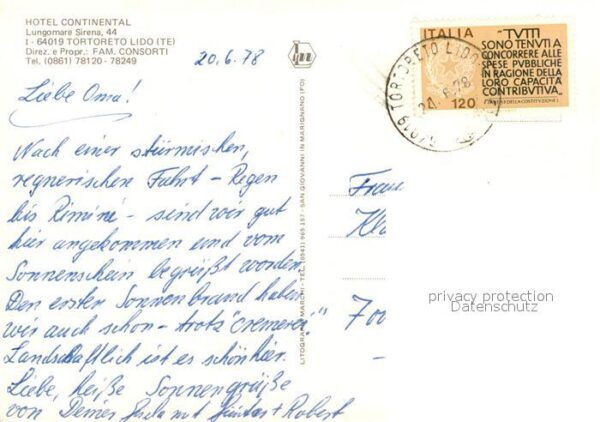 HOTEL CONTINENTAL
Lungomare Sirena, 44
I - 64019 TORTORETO LIDO (TE)
Direz. e Propr.: FAM. CONSORTI
Tel. (0861) 78120 - 78249
20.6.78
Liebe Oma!
Nach einer stürmischen,
regnerischen Fahrt - Regen
bis Rimini - sind wir gut
hier angekommen und vom
Sonnenschein begrüßt worden.
Den ersten Sonnenbrand haben
wir auch schon - trotz "cremerei"!
Landschaftlich ist es schön hier.
Liebe, heiße Sonnengrüße
von Deiner mit Günter + Robert
LITOGRAFIA MARCHI - TEL. (0541) 965.157 - SAN GIOVANNI IN MARIGNANO (FO)
ITALIA
120
"TUTTI
SONO TENUTI A
CONCORRERE ALLE
SPESE PUBBLICHE
IN RAGIONE DELLA
LORO CAPACITÀ
CONTRIBUTIVA."
64019 TORTORETO LIDO
24.6.78
Frau
7
privacy protection
Datenschutz